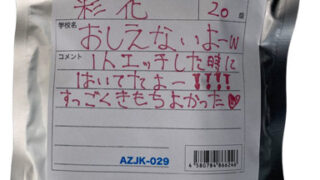 彩花 20歳
学校名
おしえないよーw
コメント
1人エッチした時に
はいてたよー!!!!
すっごくきもちよかった♥
AZJK-029
4580784866246